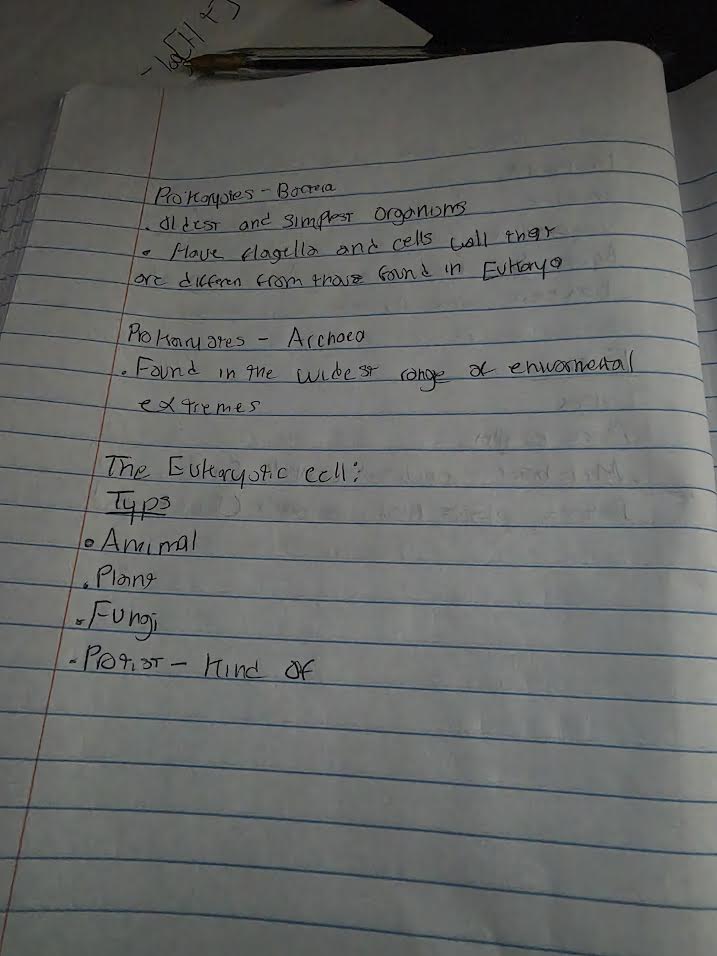 -log[H+]
Prokaryotes - Bacteria
. Oldest and simplest organisms
• Have flagella and cells wall that
are differen from those found in Eukarya
Prokaryotes - Archaea
. Found in the widest range of enviormental
extremes
The Eukaryotic cell:
Typs
• Animal
. Plant
. Fungi
- Protist - Kind of